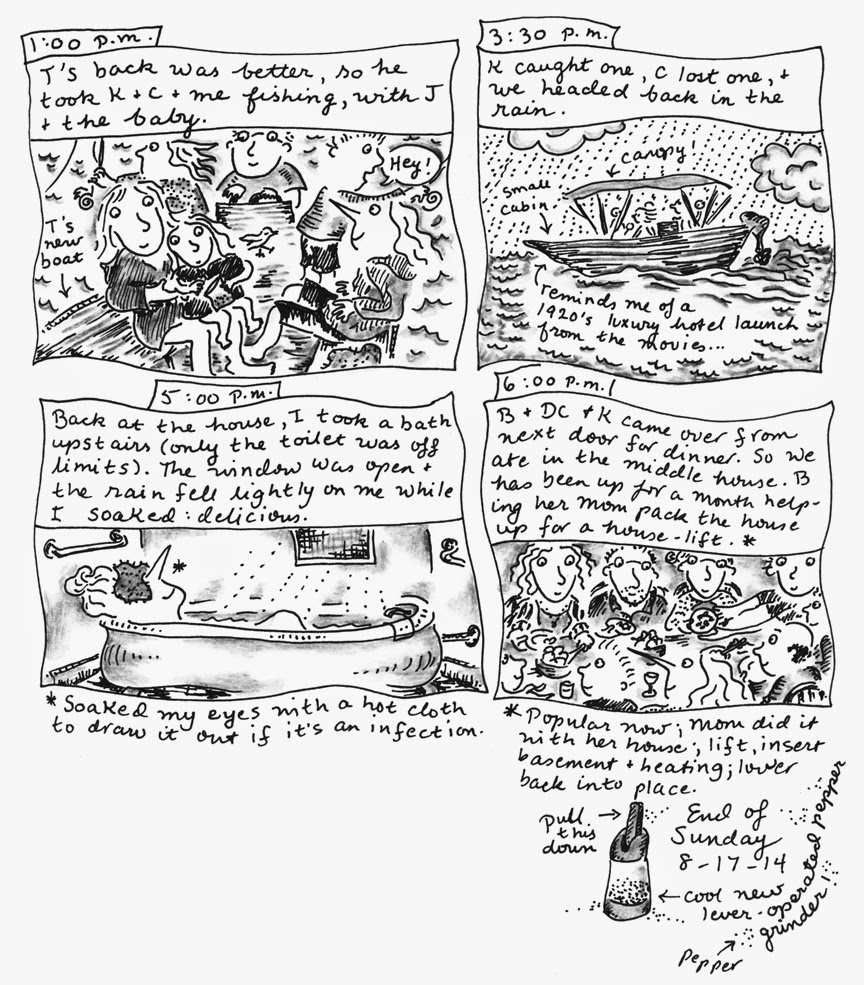 1:00 p.m.
T's back was better, so he
took K + C + me fishing, with J
+ the baby.
Hey!
T's
new
boat
3:30 p.m.
K caught one, C lost one, +
we headed back in the
rain.
canopy!
small
cabin
reminds me of a
1920's luxury hotel launch
from the movies...
5:00 p.m.
Back at the house, I took a bath
upstairs (only the toilet was off
limits). The window was open +
the rain fell lightly on me while
I soaked: delicious.
*
*Soaked my eyes with a hot cloth
to draw it out if it's an infection.
6:00 p.m.
B + DC + K came over from
next door for dinner. So we
ate in the middle house. B
has been up for a month help-
ing her mom pack the house
up for a house-lift. *
* Popular now; mom did it
with her house; lift, insert
basement + heating; lower
back into place.
Pull
this
down
End of
Sunday
8-17-14
cool new
lever-operated pepper
grinder!
pepper